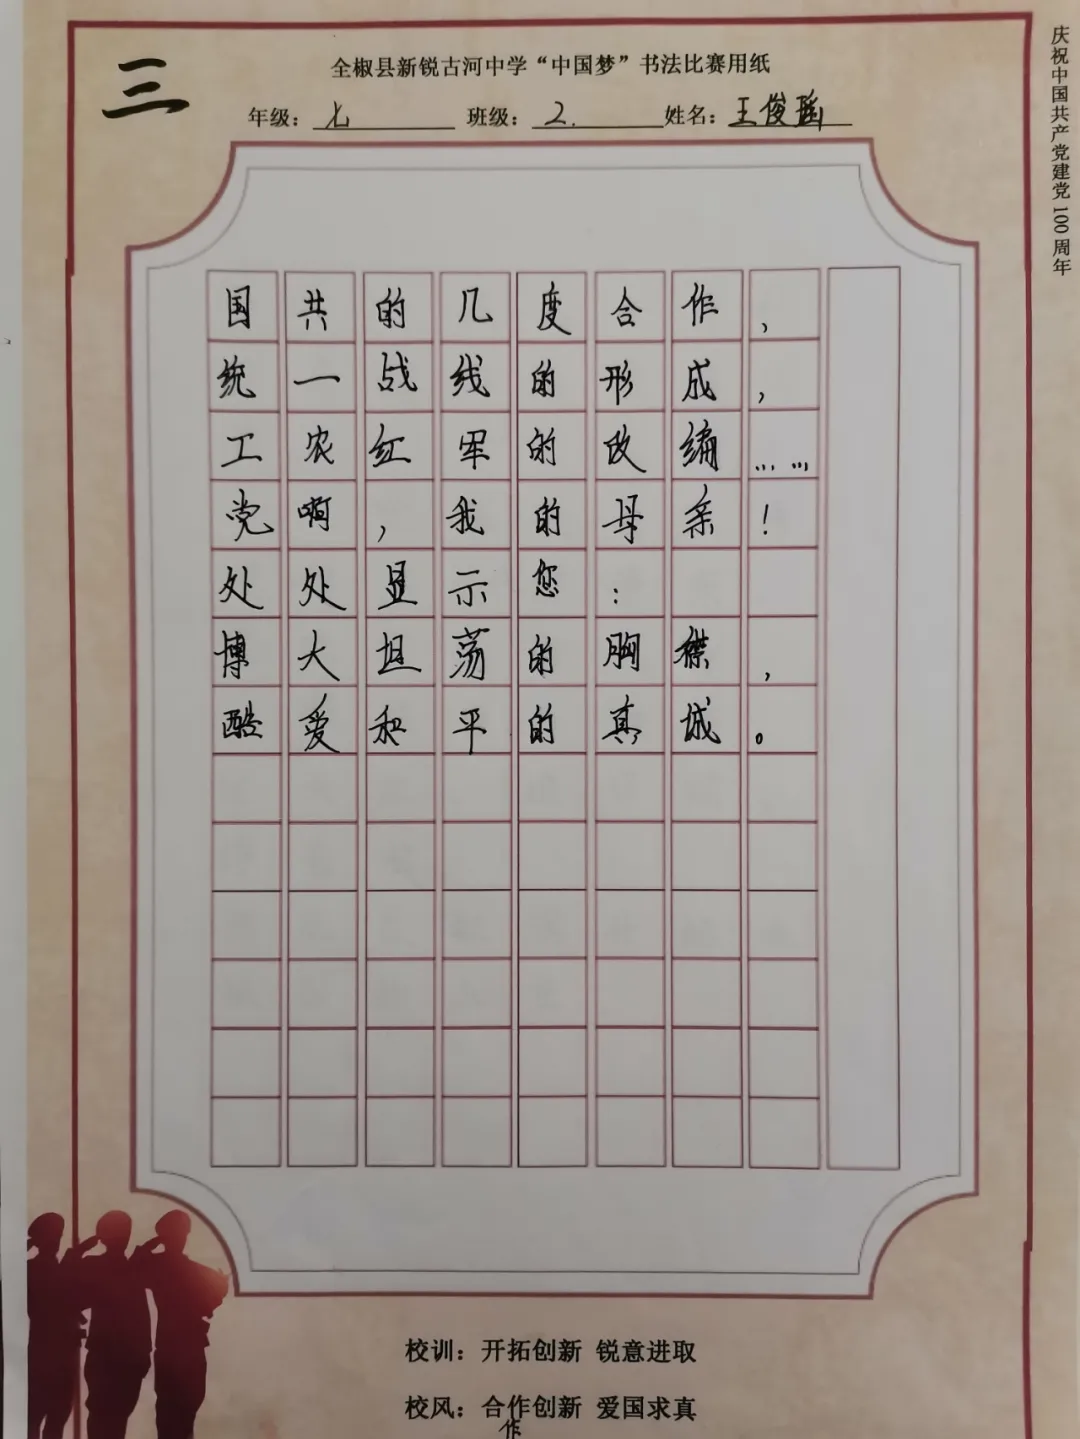 三
全椒县新锐古河中学“中国梦”书法比赛用纸
年级：七 班级：2. 姓名：王俊瑶
庆祝中国共产党建党100周年
国共的几度合作，
统一战线的形成，
工农红军的改编……
党啊，我的母亲！
处处显示您：
博大坦荡的胸襟，
酷爱和平的真诚。
校训：开拓创新 锐意进取
校风：合作创新 爱国求真
作